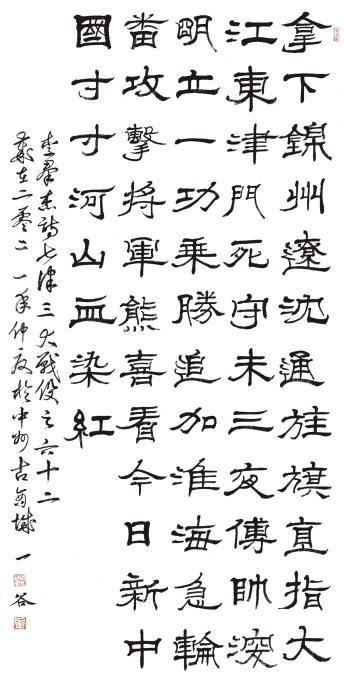 拿下錦州遼沈通旌旗直指大
江東津門死守未三夜傅帥深
明立一功乘勝追加淮海急輪
番攻擊將軍熊喜看今日新中
國寸寸河山血染紅
李詩七律三大戰役之六十二
歲在二零二一年仲夏於中州古商城一谷